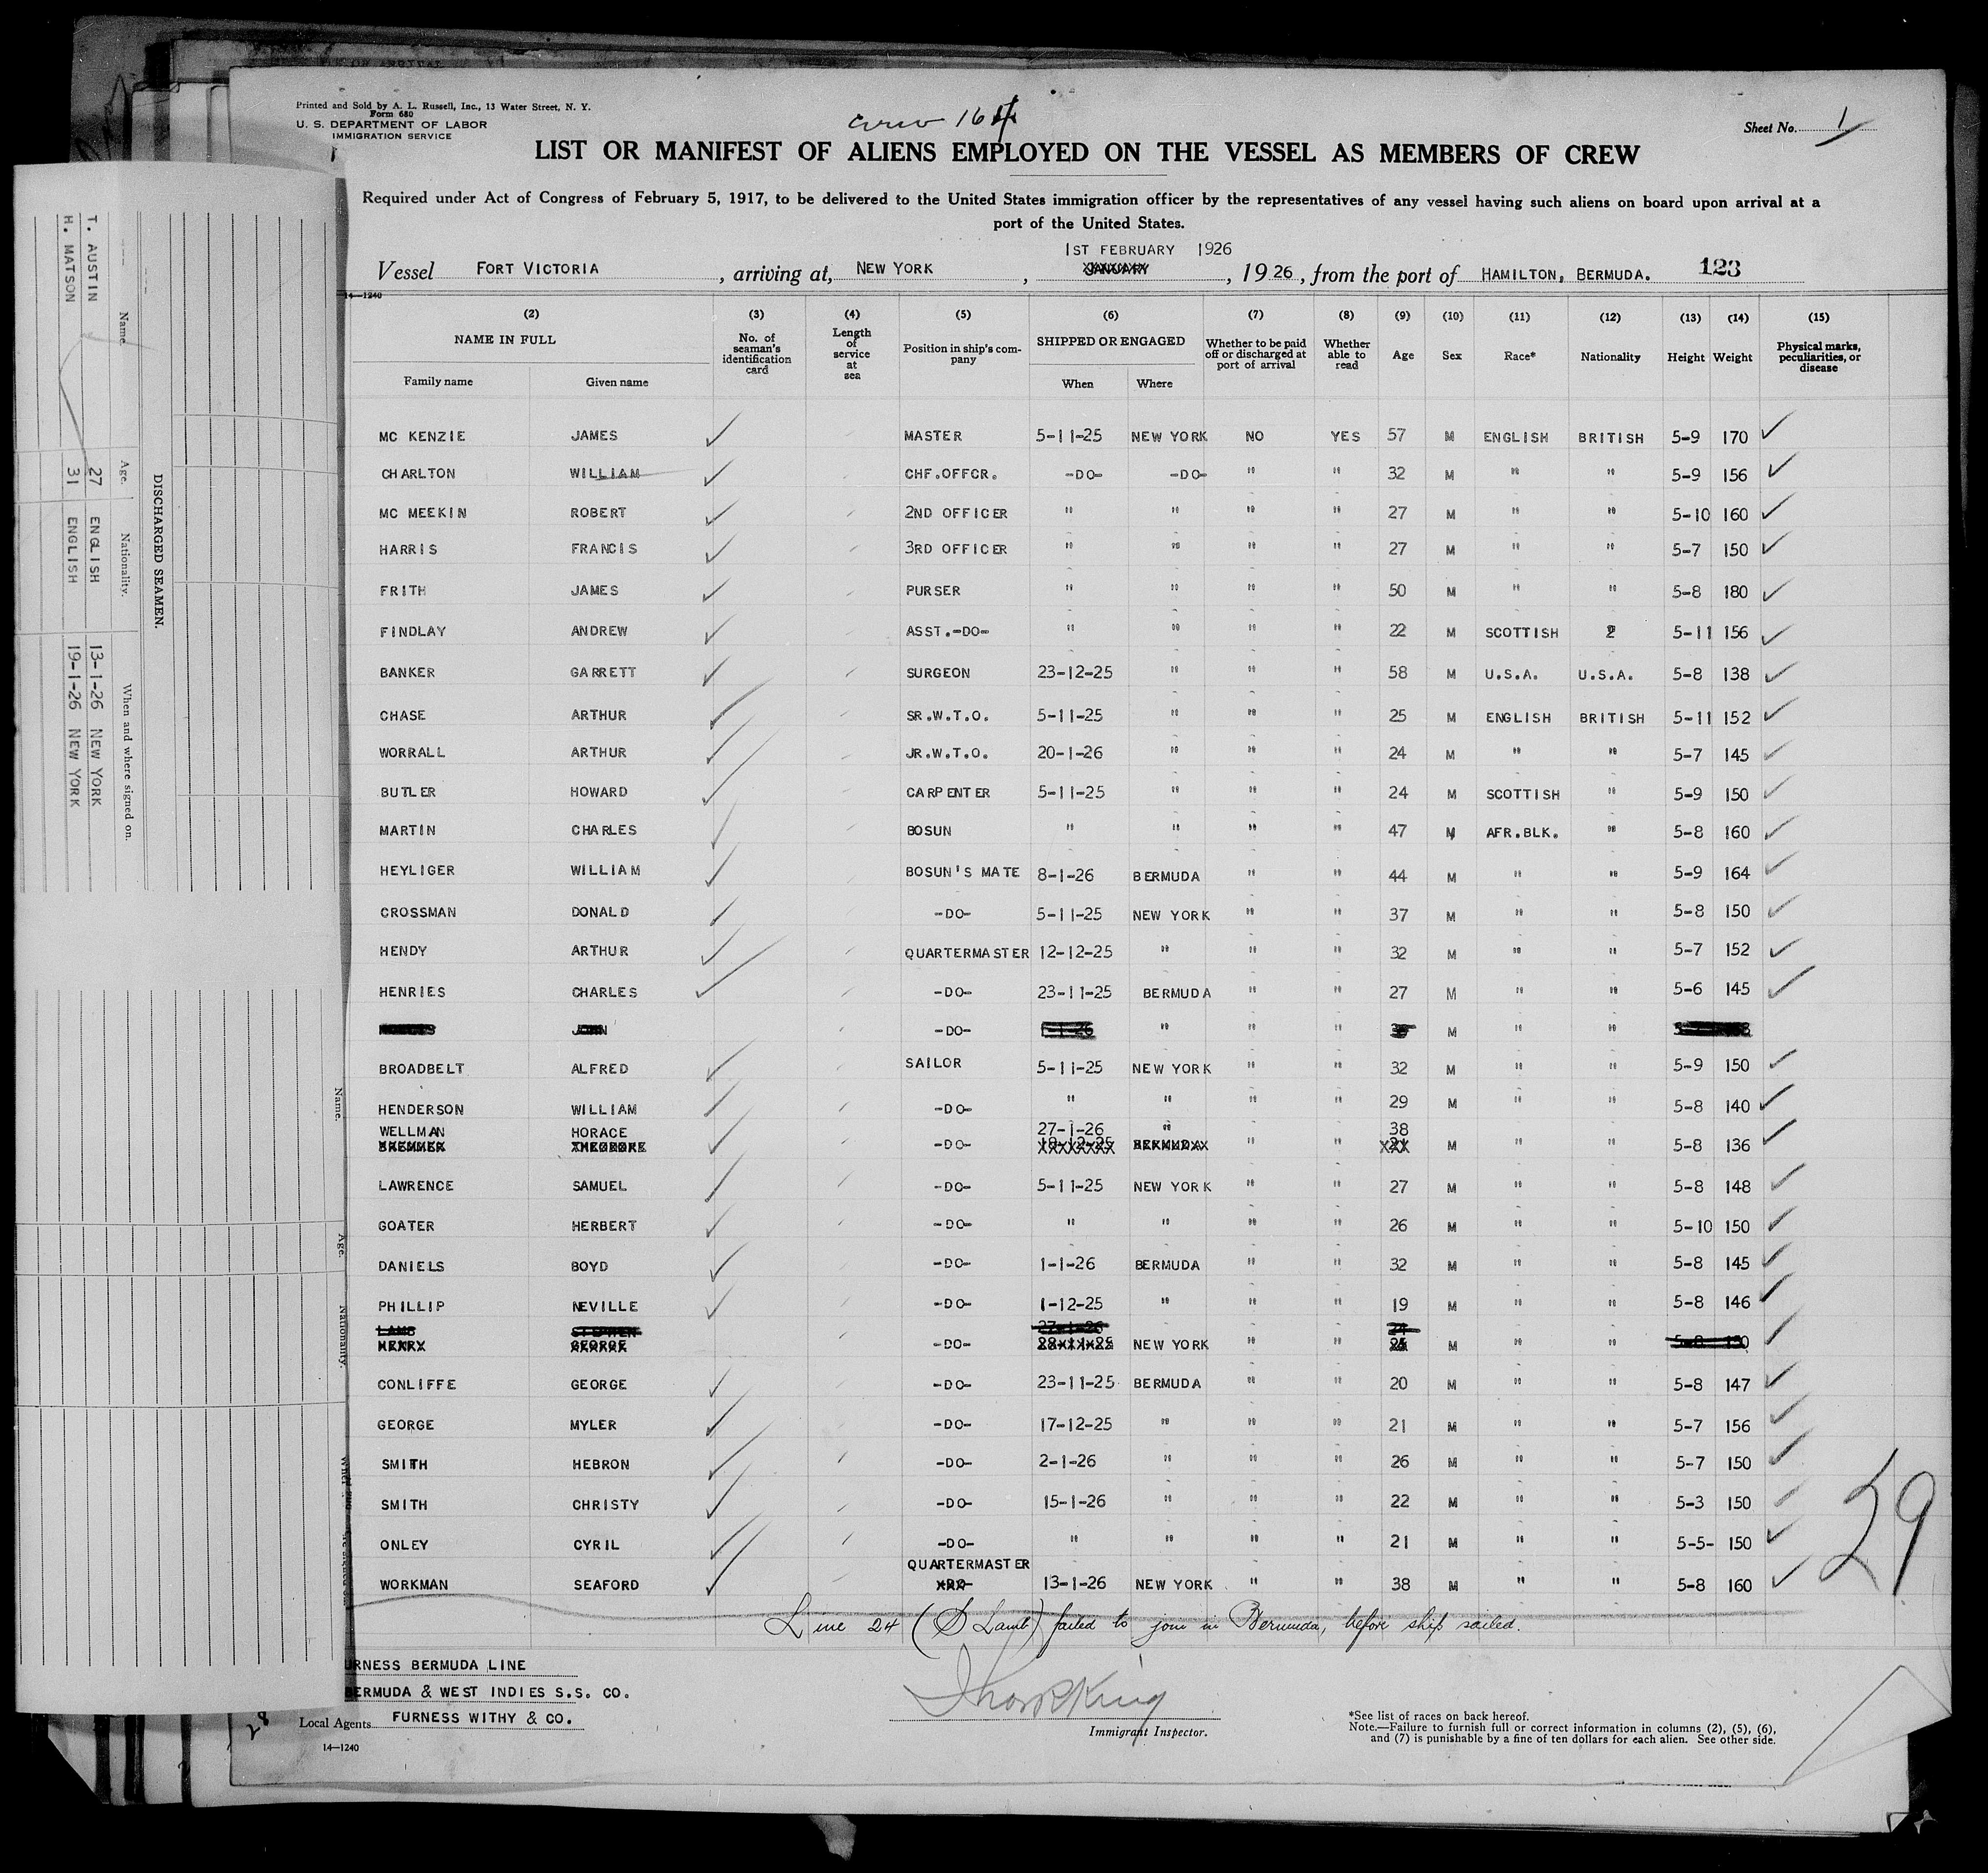 Printed and Sold by A. L. Russell, Inc., 13 Water Street, N. Y.
Form 680
U. S. DEPARTMENT OF LABOR
IMMIGRATION SERVICE
crew 164
Sheet No. 1
LIST OR MANIFEST OF ALIENS EMPLOYED ON THE VESSEL AS MEMBERS OF CREW
Required under Act of Congress of February 5, 1917, to be delivered to the United States immigration officer by the representatives of any vessel having such aliens on board upon arrival at a
port of the United States.
1ST FEBRUARY 1926
Vessel FORT VICTORIA, arriving at, NEW YORK, JANUARY, 1926, from the port of HAMILTON, BERMUDA. 123
14—1240
(2) (3) (4) (5) (6) (7) (8) (9) (10) (11) (12) (13) (14) (15)
NAME IN FULL
Family name Given name
No. of seaman's identification card
Length of service at sea
Position in ship's company
SHIPPED OR ENGAGED
When Where
Whether to be paid off or discharged at port of arrival
Whether able to read
Age Sex Race* Nationality Height Weight
Physical marks, peculiarities, or disease
MC KENZIE JAMES MASTER 5-11-25 NEW YORK NO YES 57 M ENGLISH BRITISH 5-9 170
CHARLTON WILLIAM CHF.OFFCR. -DO- -DO- " " 32 M " " 5-9 156
MC MEEKIN ROBERT 2ND OFFICER " " " " 27 M " " 5-10 160
HARRIS FRANCIS 3RD OFFICER " " " " 27 M " " 5-7 150
FRITH JAMES PURSER " " " " 50 M " " 5-8 180
FINDLAY ANDREW ASST.-DO- " " " " 22 M SCOTTISH 2 5-11 156
BANKER GARRETT SURGEON 23-12-25 " " " 58 M U.S.A. U.S.A. 5-8 138
CHASE ARTHUR SR.W.T.O. 5-11-25 " " " 25 M ENGLISH BRITISH 5-11 152
WORRALL ARTHUR JR.W.T.O. 20-1-26 " " " 24 M " " 5-7 145
BUTLER HOWARD CARPENTER 5-11-25 " " " 24 M SCOTTISH " 5-9 150
MARTIN CHARLES BOSUN " " " " 47 M AFR.BLK. " 5-8 160
HEYLIGER WILLIAM BOSUN'S MATE 8-1-26 BERMUDA " " 44 M " " 5-9 164
CROSSMAN DONALD -DO- 5-11-25 NEW YORK " " 37 M " " 5-8 150
HENDY ARTHUR QUARTERMASTER 12-12-25 " " " 32 M " " 5-7 152
HENRIES CHARLES -DO- 23-11-25 BERMUDA " " 27 M " " 5-6 145
JOHN -DO- 1-1-26 " " " M " "
BROADBELT ALFRED SAILOR 5-11-25 NEW YORK " " 32 M " " 5-9 150
HENDERSON WILLIAM -DO- " " " " 29 M " " 5-8 140
WELLMAN HORACE 27-1-26 " 38
BREMMER THEODORE -DO- 18-12-25 BERMUDA " " M " " 5-8 136
LAWRENCE SAMUEL -DO- 5-11-25 NEW YORK " " 27 M " " 5-8 148
GOATER HERBERT -DO- " " " " 26 M " " 5-10 150
DANIELS BOYD -DO- 1-1-26 BERMUDA " " 32 M " " 5-8 145
PHILLIP NEVILLE -DO- 1-12-25 " " " 19 M " " 5-8 146
LAMB STEPHEN 27-1-26 24
HENRY GEORGE -DO- NEW YORK " " M " " 5-8 130
CONLIFFE GEORGE -DO- 23-11-25 BERMUDA " " 20 M " " 5-8 147
GEORGE MYLER -DO- 17-12-25 " " " 21 M " " 5-7 156
SMITH HEBRON -DO- 2-1-26 " " " 26 M " " 5-7 150
SMITH CHRISTY -DO- 15-1-26 " " " 22 M " " 5-3 150
ONLEY CYRIL -DO- " " " " 21 M " " 5-5- 150
QUARTERMASTER
WORKMAN SEAFORD -DO- 13-1-26 NEW YORK " " 38 M " " 5-8 160
29
Line 24 (S Lamb) failed to join in Bermuda, before ship sailed.
URNESS BERMUDA LINE
BERMUDA & WEST INDIES S.S. CO.
Local Agents FURNESS WITHY & CO.
28
14—1240
Immigrant Inspector.
*See list of races on back hereof.
Note.—Failure to furnish full or correct information in columns (2), (5), (6),
and (7) is punishable by a fine of ten dollars for each alien. See other side.
DISCHARGED SEAMEN.
Name Age. Nationality. When and where signed on.
T. AUSTIN 27 ENGLISH 13-1-26 NEW YORK
H. MATSON 31 ENGLISH 19-1-26 NEW YORK
Name. Age. Nationality.